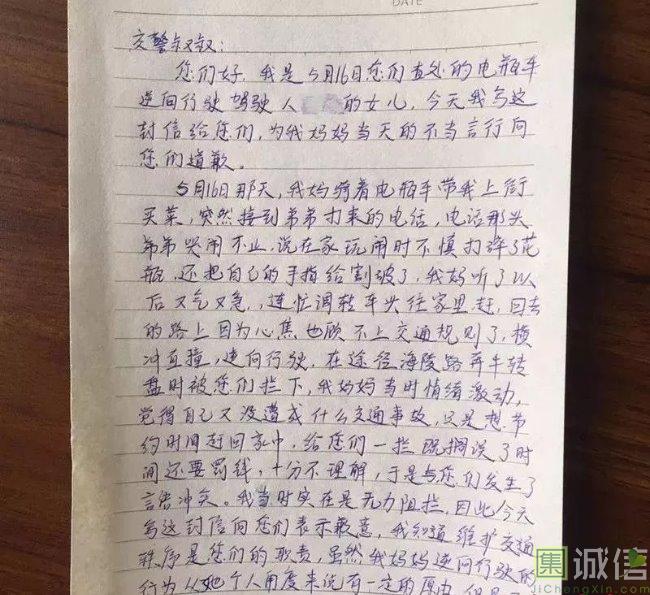 DATE
交警叔叔：
您们好，我是5月16日您们查处的电瓶车
逆向行驶驾驶人的女儿，今天我写这
封信给您们，为我妈妈当天的不当言行向
您们道歉。
5月16日那天，我妈骑着电瓶车带我上街
买菜，突然接到弟弟打来的电话，电话那头
弟弟哭闹不止，说在家玩闹时不慎打碎了花
瓶，还把自己的手指给割破了，我妈听了以
后又气又急，连忙调转车头往家里赶，回去
的路上因为心焦也顾不上交通规则了，横
冲直撞，逆向行驶，在途径海陵路奔牛转
盘时被您们拦下，我妈妈当时情绪激动，
觉得自己又没造成什么交通事故，只是想节
约时间赶回家中，给您们一拦既搁误了时
间还要罚钱，十分不理解，于是与您们发生了
言语冲突。我当时实在是无力阻拦，因此今天
写这封信向您们表示歉意，我知道维护交通
秩序是您们的职责，虽然我妈妈逆向行驶的
行为从她个人角度来说有一定的原由，但是
集诚信
JiChengXin.com